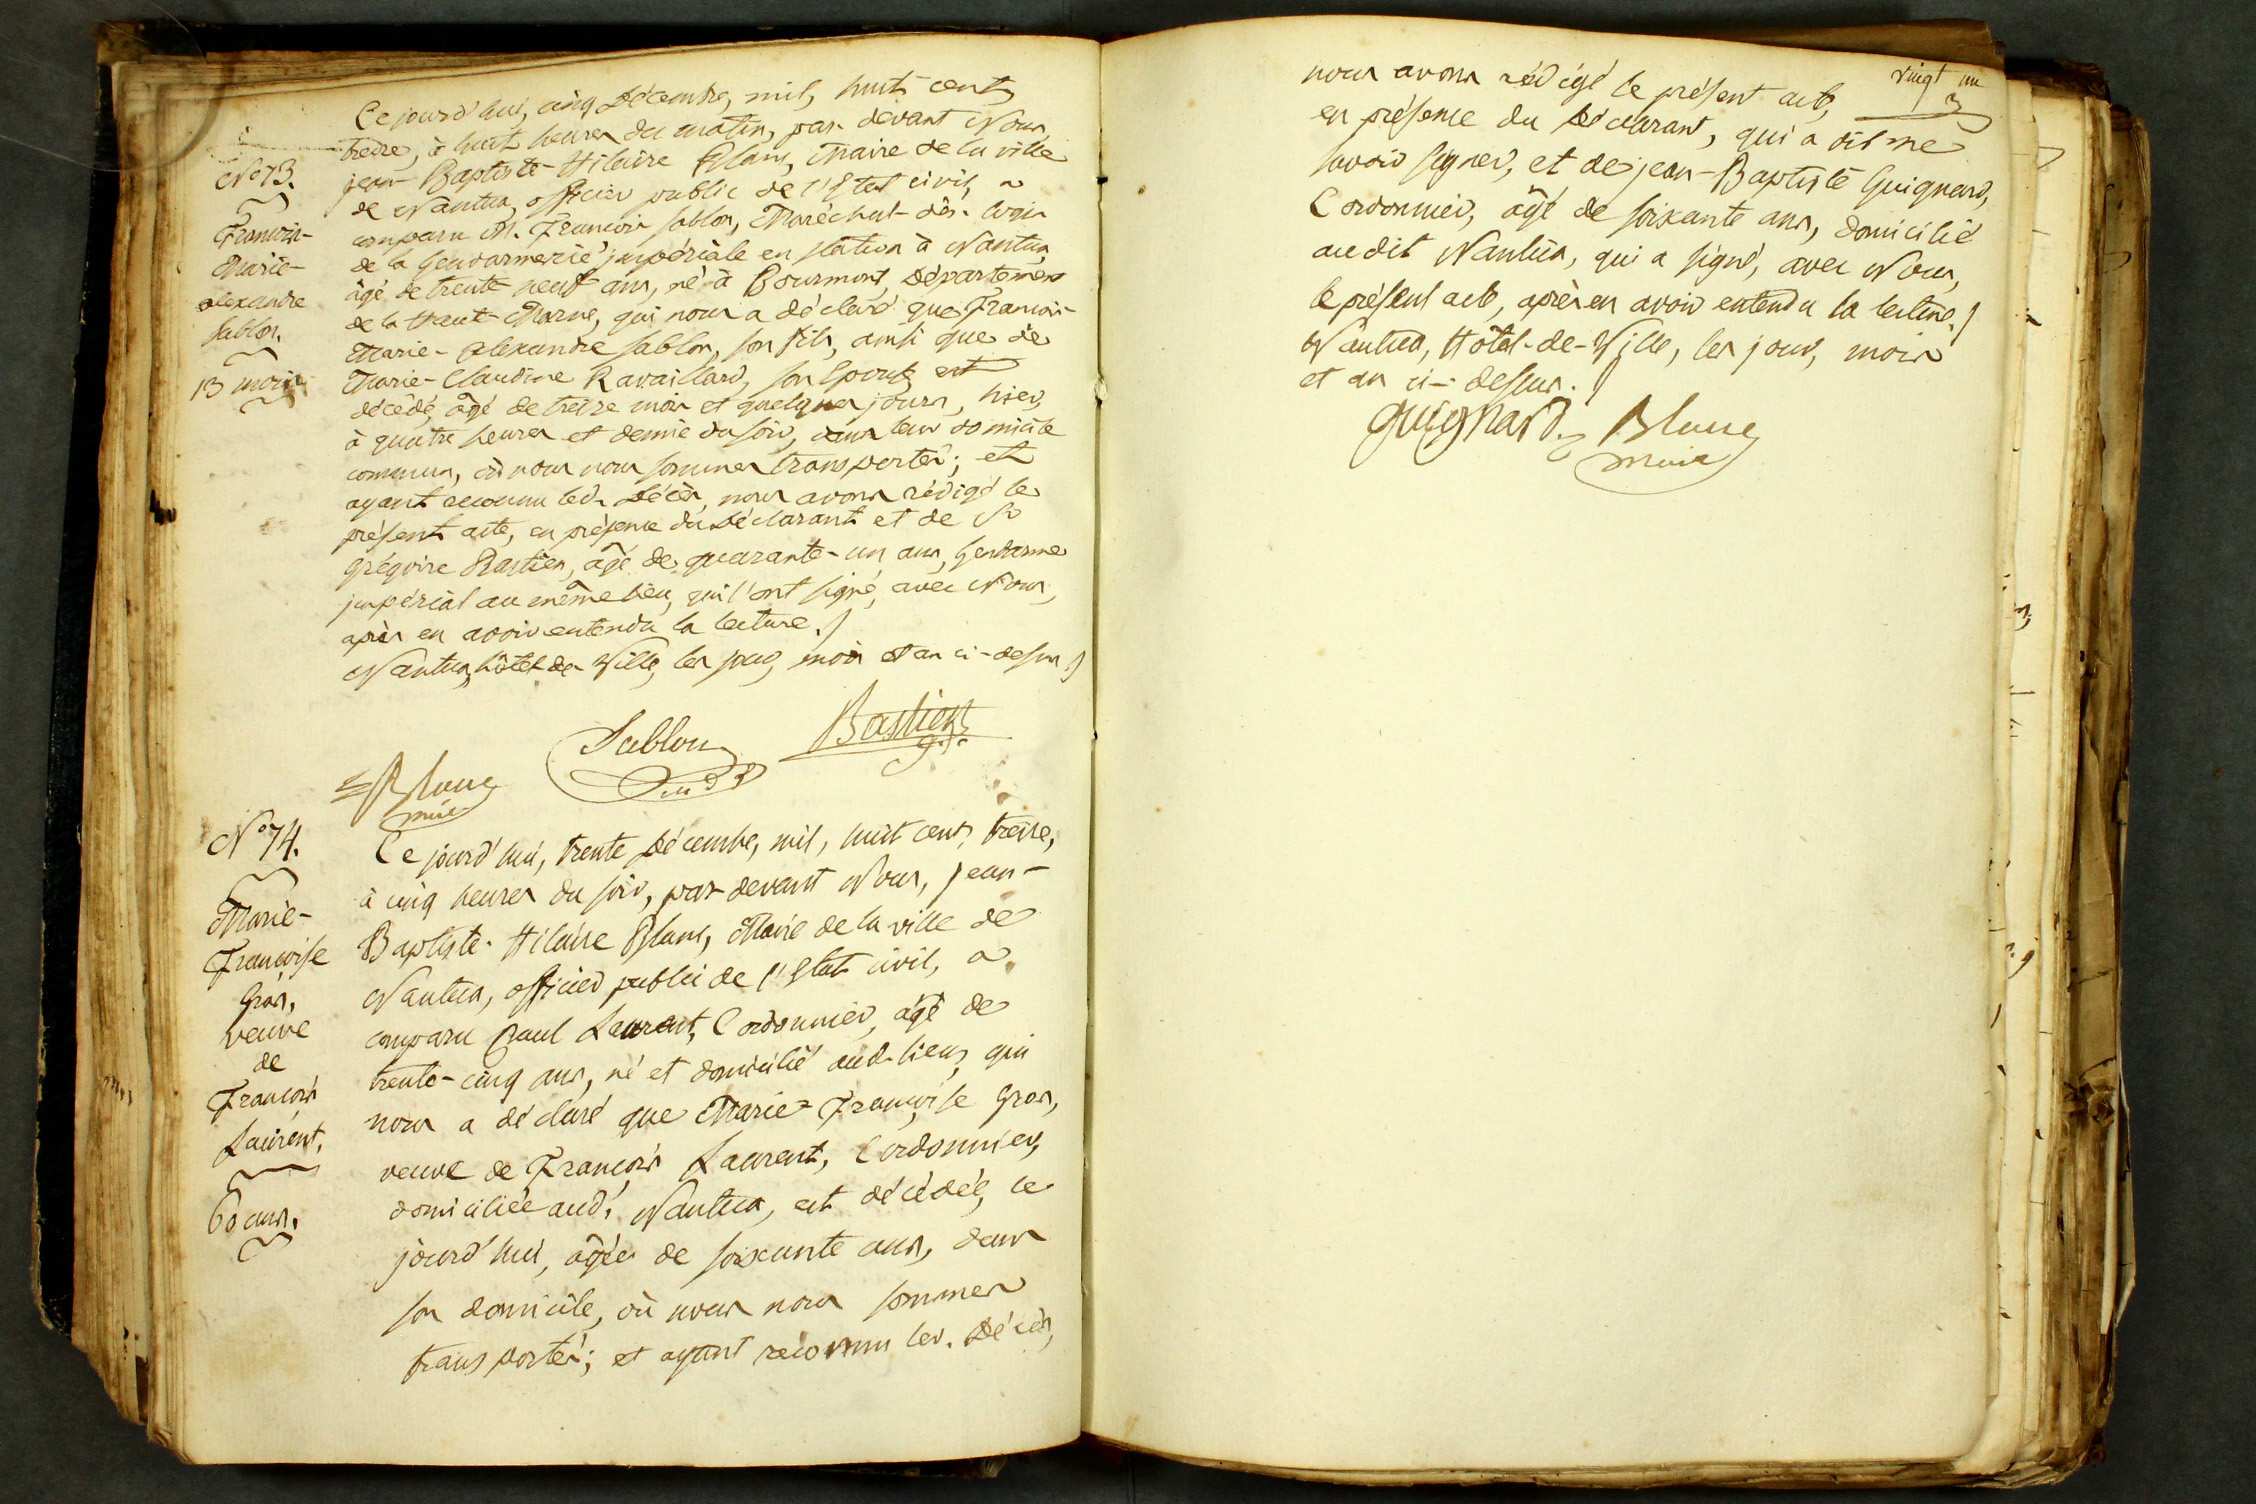 Ce jourd'hui, cinq Décembre, mil, huit cent
treize, à huit heures du matin, par-devant Nous,
jean-Baptiste-Hilaire Blanc, Maire de la ville
de Nantua, officier public de l'Etat civil, a
comparu M. François Sablon, Maréchal-dès-Logis
de la Gendarmerie impériale en station à Nantua,
âgé de trente neuf ans, né à Bourmont, Département
de la Haute-Marne, qui nous a déclaré que François-
Marie-Alexandre Sablon, son fils, ainsi que de
Marie-Claudine Ravaillard, son Epouse, est
décédé, âgé de treize mois et quelques jours, hier,
à quatre heures et demie du soir, dans leur domicile
commun, où nous nous sommes transportés; et
ayant reconnu led. Décès, nous avons rédigé le
présent acte, en présence du Déclarant et de Sr
grégoire Bastien, âgé de quarante-un ans, Gendarme
impérial au même lieu, qui l'ont signé, avec Nous,
après en avoir entendu la lecture./
Nantua, hôtel de Ville, les jour, mois et an ci-dessus./
No 73.
François-
Marie-
alexandre
Sablon.
13 mois
Sablon
Bastien
Blanc
maire
No 74.
Marie-
Françoise
Gros,
veuve
de
François
Laurent.
60 ans.
Ce jourd'hui, trente Décembre, mil, huit cent, treize,
à cinq heures du soir, par-devant Nous, jean-
Baptiste-Hilaire Blanc, Maire de la ville de
Nantua, officier public de l'Etat civil, a
comparu Paul Laurent, Cordonnier, âgé de
trente-cinq ans, né et domicilié aud. lieu, qui
nous a déclaré que Marie-Françoise Gros,
veuve de François Laurent, Cordonnier,
domiciliée aud. Nantua, est décédée, ce
jourd'hui, âgée de soixante ans, dans
son domicile, où nous nous sommes
transportés; et ayant reconnu led. Décès,
vingt un
nous avons rédigé le présent acte,
en présence du Déclarant, qui a dit ne
savoir signer, et de jean-Baptiste Guignard,
Cordonnier, âgé de soixante ans, domicilié
audit Nantua, qui a signé, avec Nous,
le présent acte, après en avoir entendu la lecture./
Nantua, Hôtel-de-Ville, les jour, mois
et an ci-dessus./
guignard
Blanc
maire